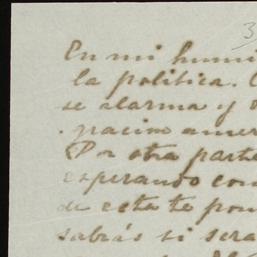 3
En mi humi
la politica.
se alarma y
Por otra parte
esperando con
de esta te pon
sabrás si sera